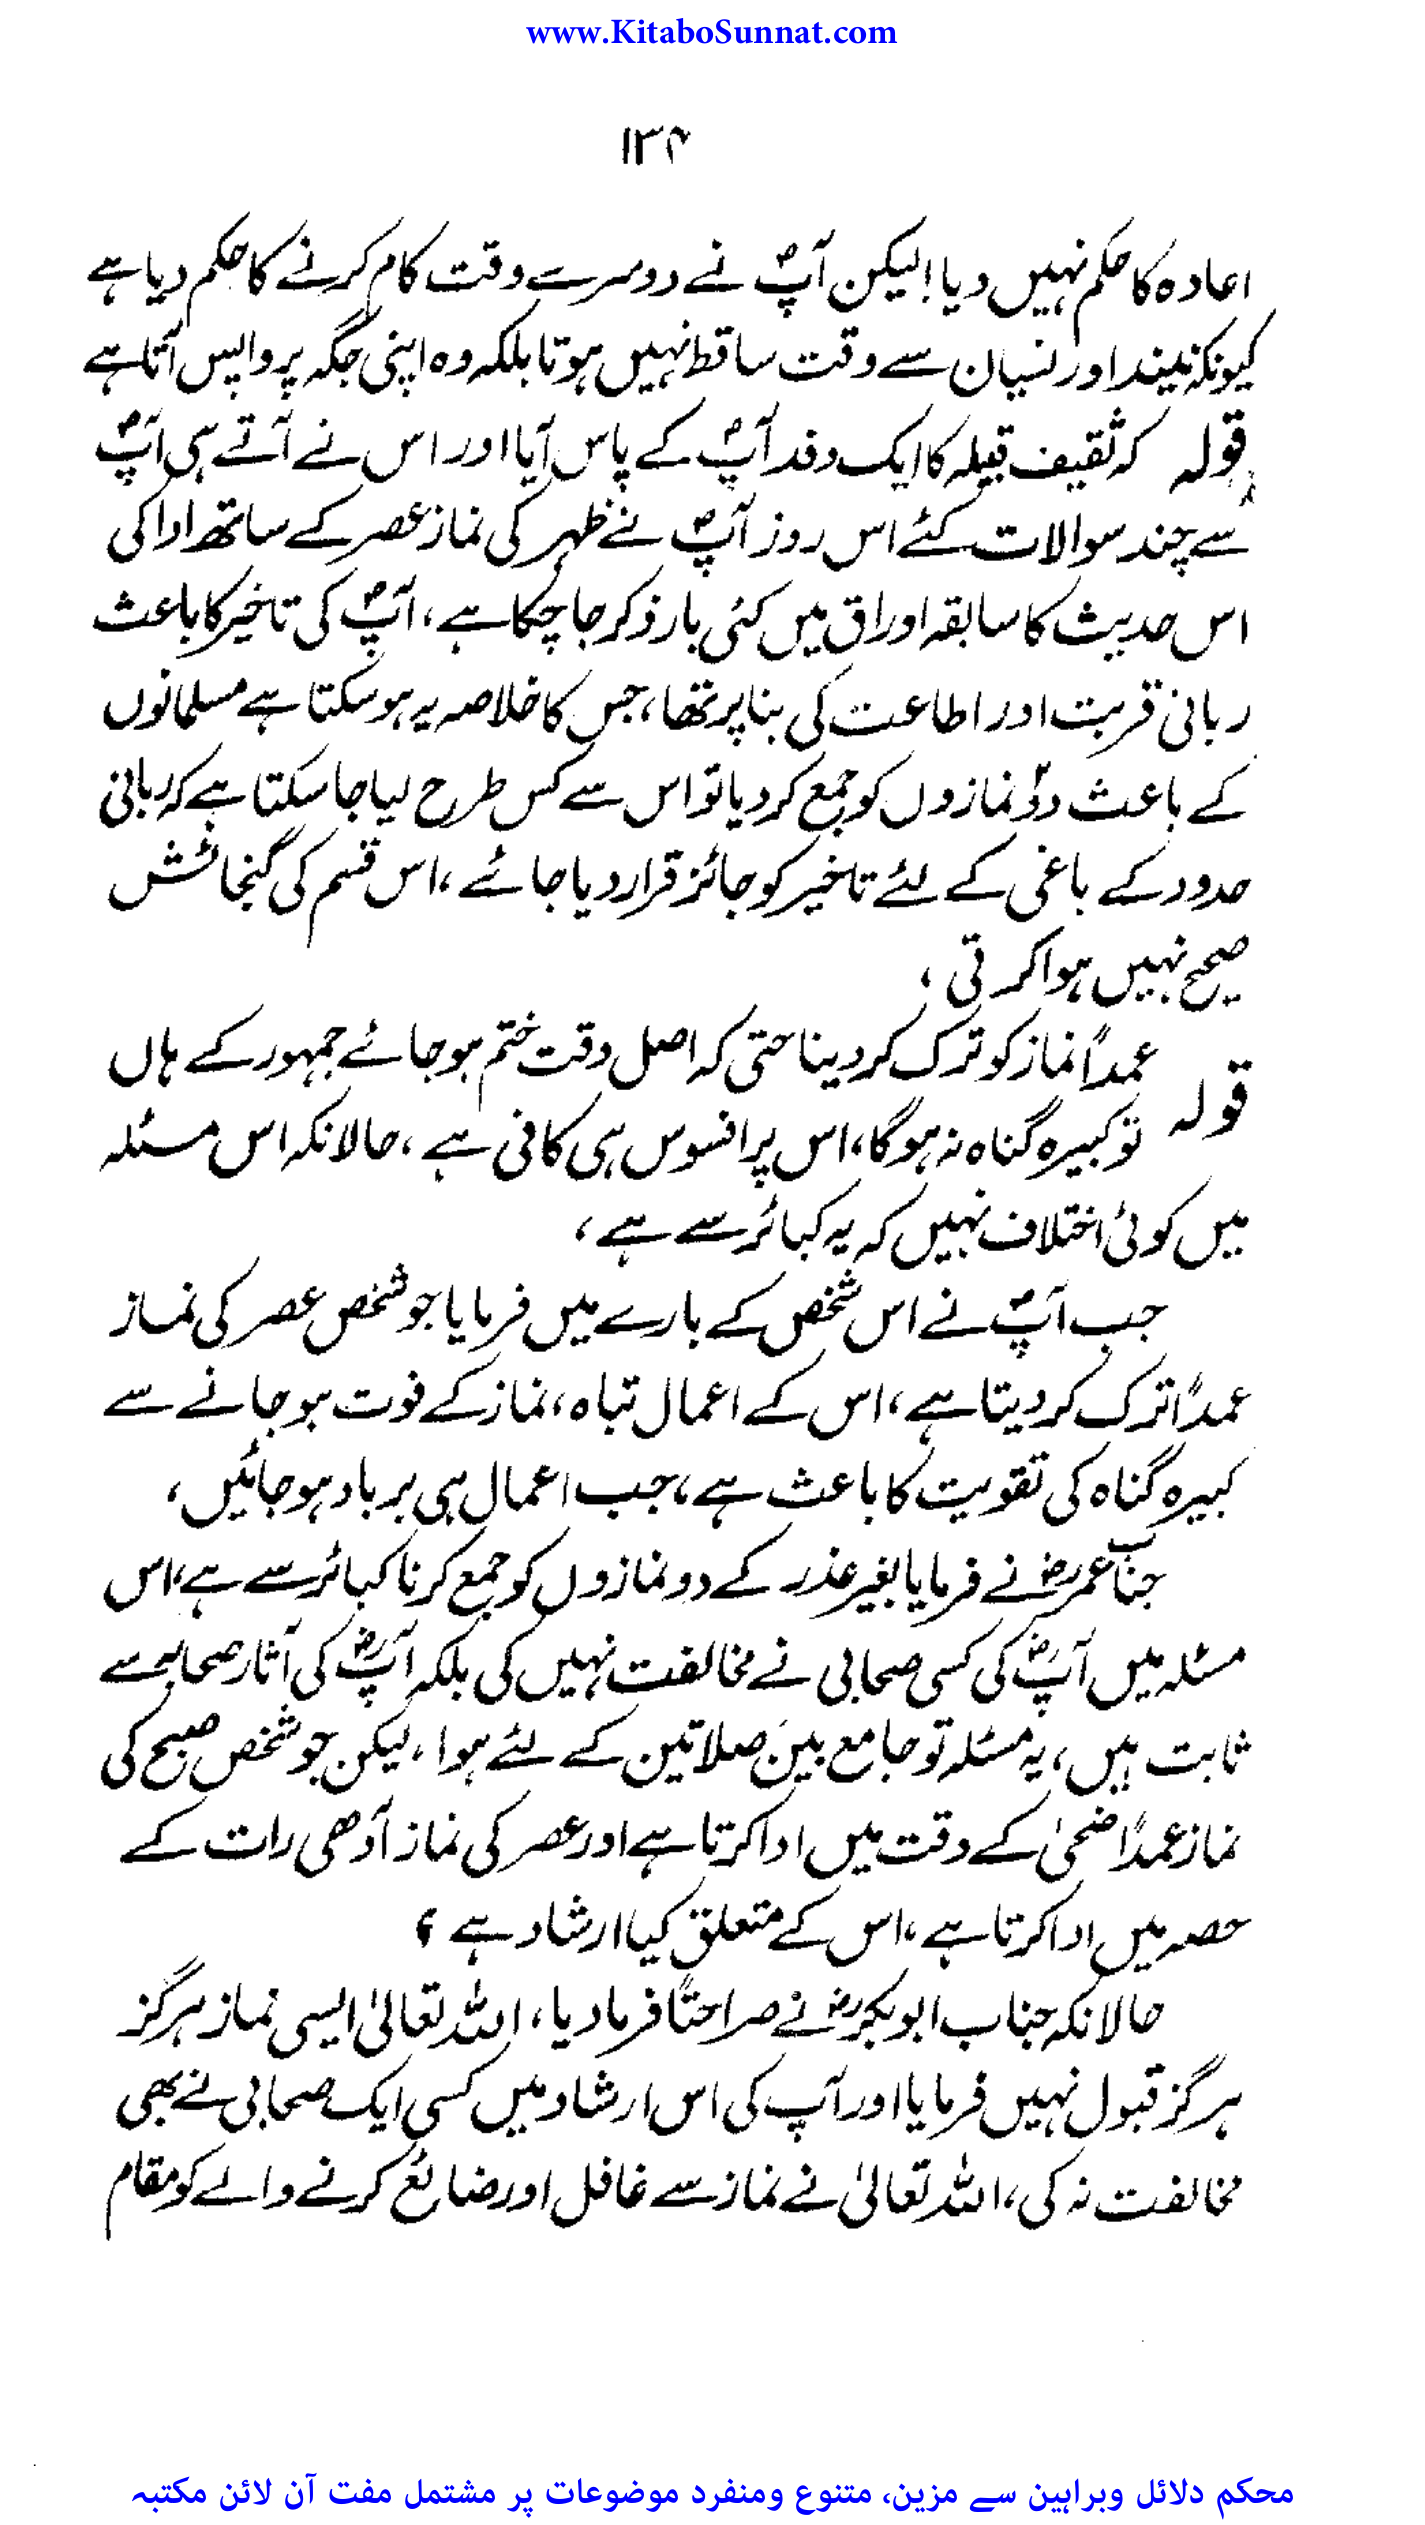 www.KitaboSunnat.com
۱۳۴
اعادہ کا حکم نہیں دیا! لیکن آپؐ نے دوسرے وقت کام کرنے کا حکم دیا ہے
کیونکہ نیند اور نسیان سے وقت ساقط نہیں ہوتا بلکہ وہ اپنی جگہ پر واپس آتا ہے
قولہ کہ ثقیف قبیلہ کا ایک وفد آپؐ کے پاس آیا اور اس نے آتے ہی آپؐ
سے چند سوالات کئے اس روز آپؐ نے ظہر کی نماز عصر کے ساتھ ادا کی
اس حدیث کا سابقہ اوراق میں کئی بار ذکر جا چکا ہے، آپؐ کی تاخیر کا باعث
ربانی قربت اور اطاعت کی بنا پر تھا، جس کا خلاصہ یہ ہو سکتا ہے مسلمانوں
کے باعث دوؔ نمازوں کو جمع کر دیا تو اس سے کس طرح لیا جا سکتا ہے کہ ربانی
حدود کے باغی کے لئے تاخیر کو جائز قرار دیا جائے، اس قسم کی گنجائش
صحیح نہیں ہوا کرتی،
عمداً نماز کو ترک کر دینا حتی کہ اصل وقت ختم ہو جائے جمہور کے ہاں
قولہ تو کبیرہ گناہ نہ ہوگا، اس پر افسوس ہی کافی ہے، حالانکہ اس مسئلہ
میں کوئی اختلاف نہیں کہ یہ کبائر سے ہے،
جب آپؐ نے اس شخص کے بارے میں فرمایا جو شخص عصر کی نماز
عمداً ترک کر دیتا ہے، اس کے اعمال تباہ، نماز کے فوت ہو جانے سے
کبیرہ گناہ کی تقویت کا باعث ہے، جب اعمال ہی برباد ہو جائیں،
جناب عمرؓ نے فرمایا بغیر عذر کے دو نمازوں کو جمع کرنا کبائر سے ہے، اس
مسئلہ میں آپؓ کی کسی صحابی نے مخالفت نہیں کی بلکہ آپؓ کی آثار صحابہ سے
ثابت ہیں، یہ مسئلہ تو جامع بینَ صلاتین کے لئے ہوا، لیکن جو شخص صبح کی
نماز عمداً ضحیٰ کے وقت میں ادا کرتا ہے اور عصر کی نماز آدھی رات کے
حصہ میں ادا کرتا ہے، اس کے متعلق کیا ارشاد ہے ؟
حالانکہ جناب ابوبکرؓ نے صراحتاً فرما دیا، اللہ تعالیٰ ایسی نماز ہرگز
ہرگز قبول نہیں فرمایا اور آپ کی اس ارشاد میں کسی ایک صحابی نے بھی
مخالفت نہ کی، اللہ تعالیٰ نے نماز سے غافل اور ضائع کرنے والے کو مقام
محکم دلائل وبراہین سے مزین، متنوع ومنفرد موضوعات پر مشتمل مفت آن لائن مکتبہ